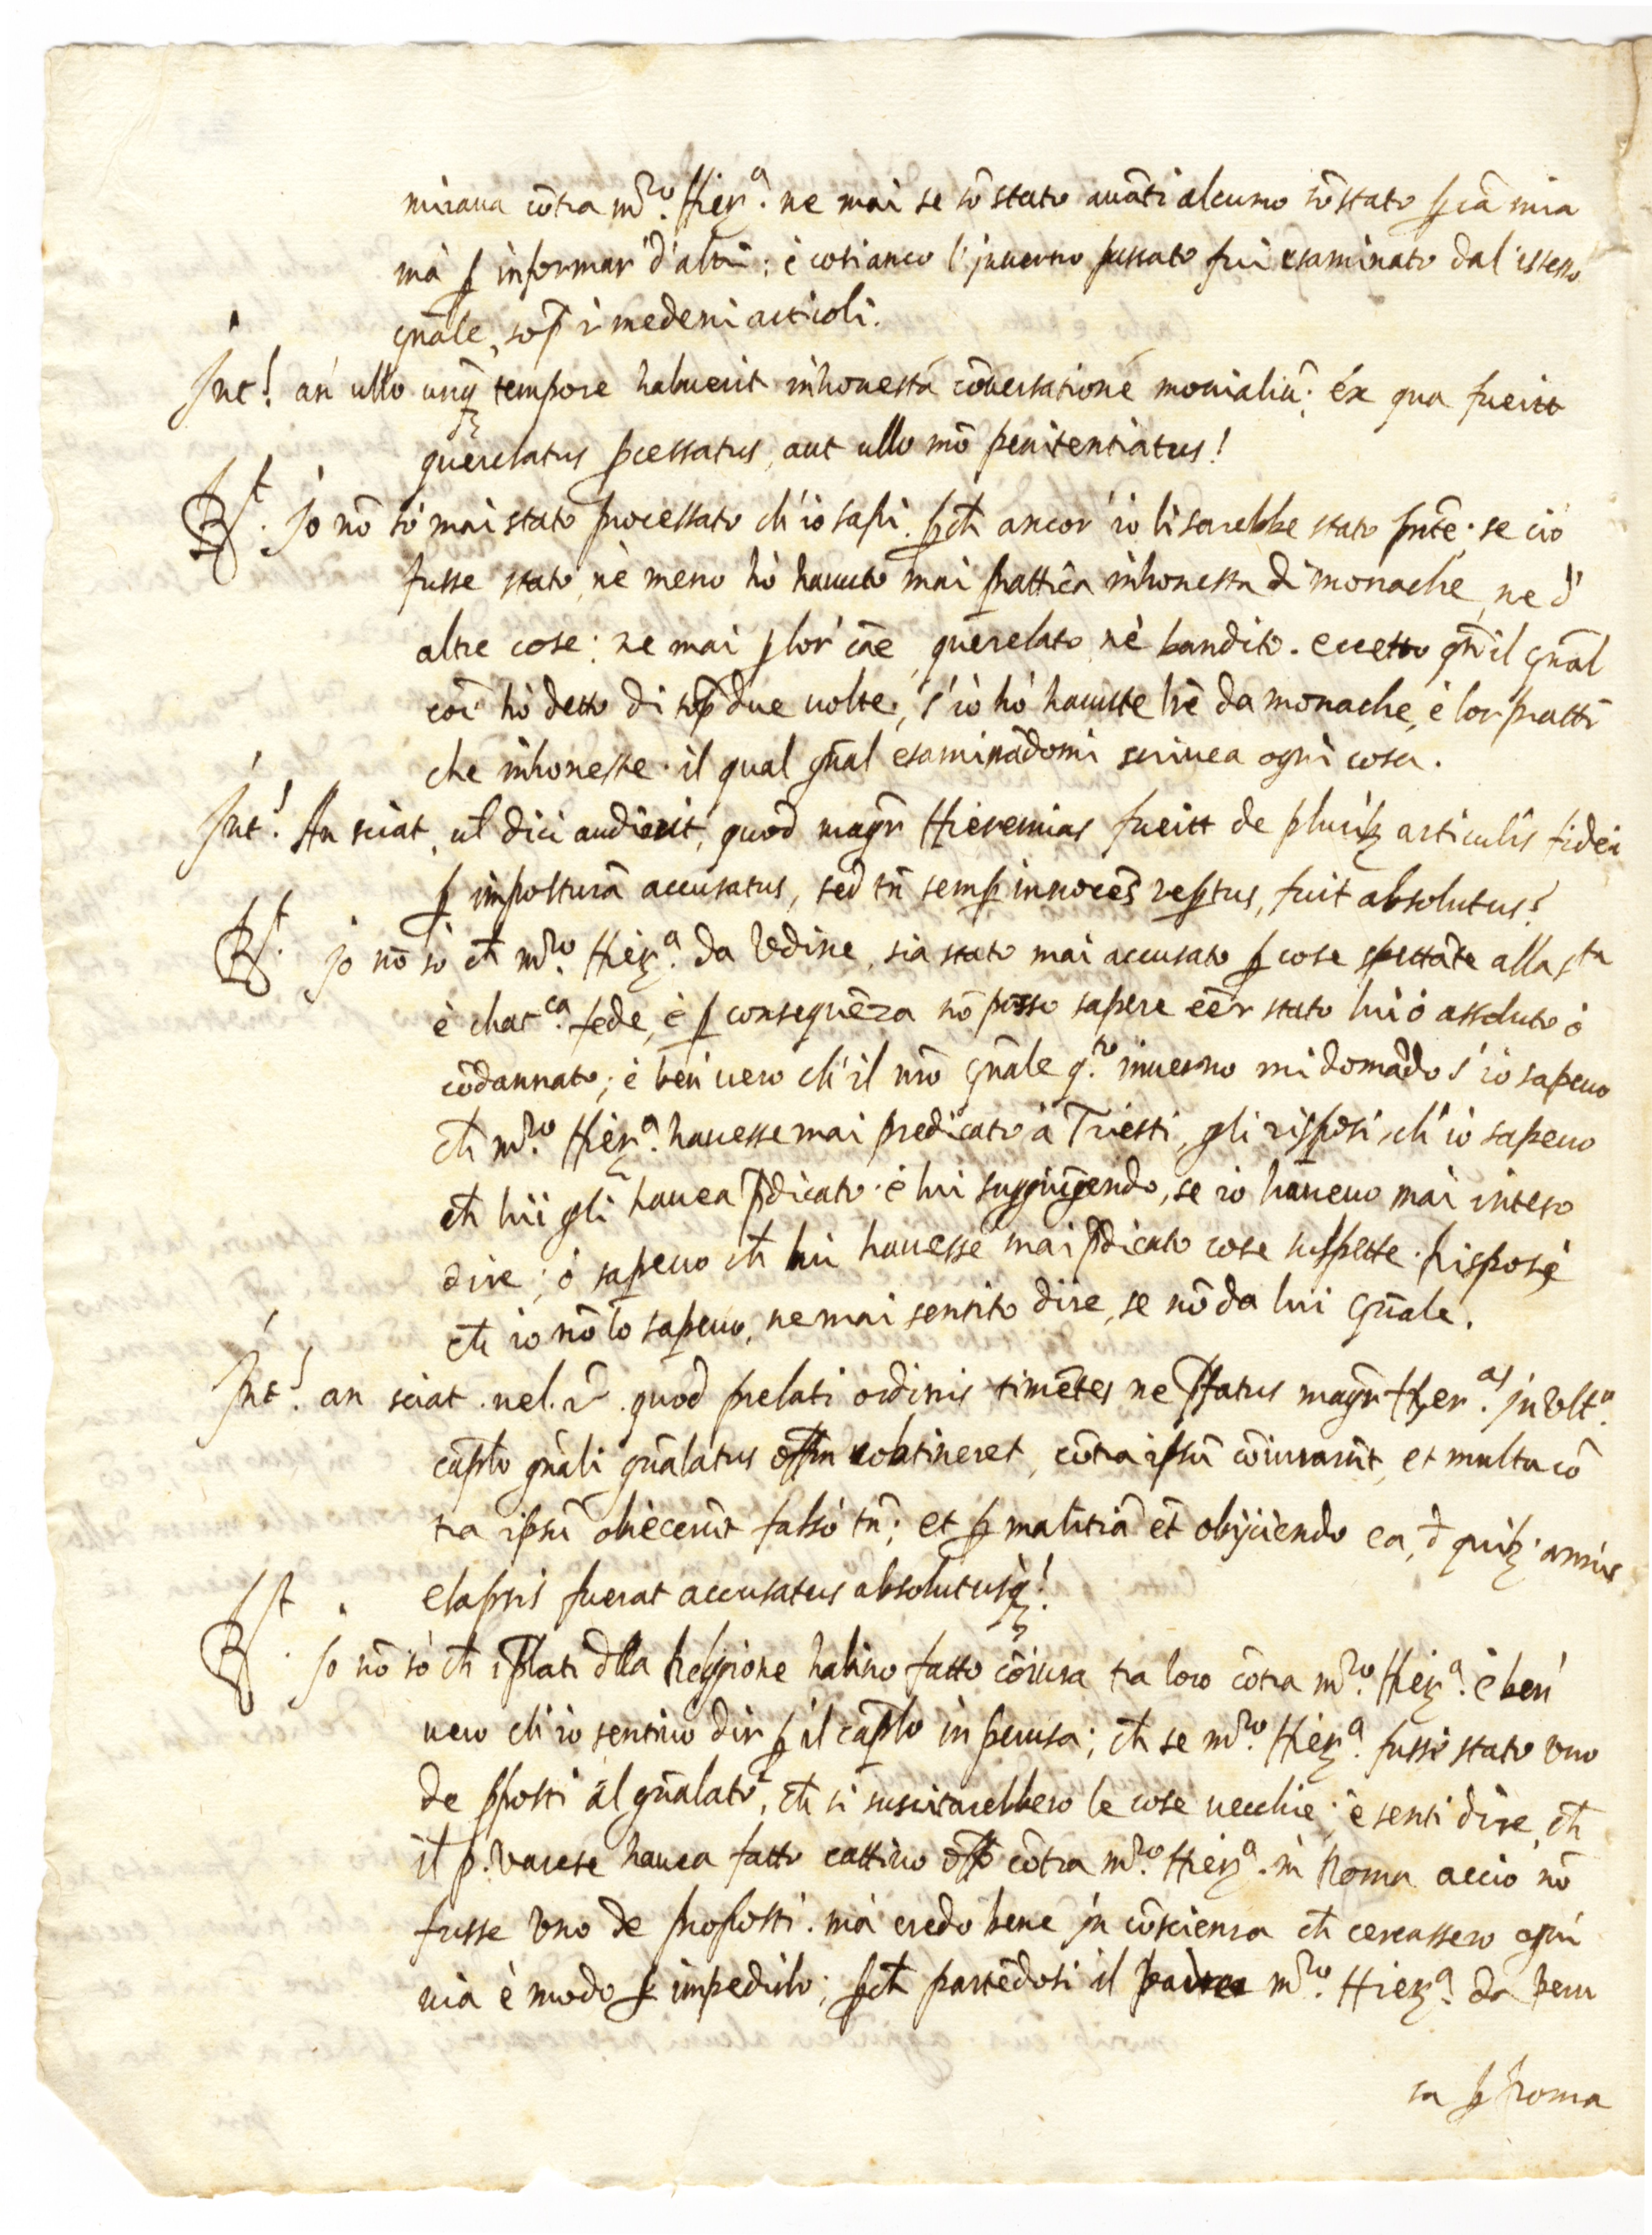 miraua cõtra m.ro Hier.a ne mai se sõ stato auãti alcumo sõ stato ꝑ cã mia
mà ꝑ informar d'altri: è cosi anco l'inuerno passato fui esaminato dal'istesso
gñale, sop̃ i medemi articoli.
Int.! an ullo unq̃ tempore habuerit inhonestã cõuersationẽ monialiũ; ex qua fuerit
querelatus ꝓcessatus, aut ullo mõ penitentiatus!
R.t Jo nõ sò mai stato processato ch'io sapi. ꝑch̃ ancor'io li sarebbe stato p̃nte. se ciò
fusse stato, nè meno hò hauuto mai prattica inhonesta di monache, ne d'
altre cose: ne mai ꝑ lor' cãe querelato nè bandito. eccetto q̃n il gñal
coẽ hò detto di sop̃ due uolte, s'iò hò hauute lrẽ da monache, è lor pratti
che inhoneste. il qual gñal esaminãdomi scriuea ogni cosa.
Int.! An sciat, ul̃ dici audierit, quod magr̃ Hieremias fuerit de plurib; articulis fidei
ꝑ imposturã accusatus, sed tñ semꝑ innocẽs reꝑtus, fuit absolutus?
R.t jo nõ sò ch̃ m.ro Hier.a da Vdine, sia stato mai accusato ꝑ cose spettãte alla s.ta
è chat.ca fede, è ꝑ consequẽza nõ posso sapere eẽr stato lui ò assoluto ò
cõdannato; è ben uero ch'il nrõ gñale q.to inuerno mi domãdo s'io sapeuo
ch̃ m.ro Hier.a hauesse mai predicato à Triesti, gli risposi, ch'iò sapeuo
ch̃ lui gli hauea p̃dicato. è lui suggiũgendo, se io haueuo mai inteso
dire; ò sapeuo ch̃ lui hauesse mai p̃dicato cose suspette. Risposi
ch̃ io nõ lo sapeuo, ne mai sentito dire, se nõ da lui gñale.
Int.! an sciat. uel. r̃. quod prelati ordinis timẽtes ne p̃fatus magr̃ Hier.as in Vlt.o
capl̃o gñali gñalatus off̃m obtineret, cõtra ipsũ cõiurarũt, et multa cõ
tra ipsũ obiecerũt falsò tñ; et ꝑ malitiã et̃ obijciendo ea, d̃ quib; annis
elapsis fuerat accusatus absolutusq;!
R.t Jo nõ sò ch̃ i p̃lati d̃lla Religione habino fatto cõiura tra loro cõtra m.ro Hier.a è ben
uero ch'io sentiuo dir ꝑ il capl̃o in perusa; ch̃ se m.ro Hier.a fusse stato vno
de ꝓposti al gñalato, ch̃ si suscitarebbero le cose uecchie; è senti dire, ch̃
il p. Varese hauea fatto cattiuo off̃o cõtra m.ro Hier.a in Roma acciò nõ
fusse vno de proposti. mà credo bene in cõscienza ch̃ cercassero ogni
uia è modo ꝑ impedirlo; ꝑch̃ partẽdosi il padre m.ro Hier.a da Peru
sa ꝑ Roma